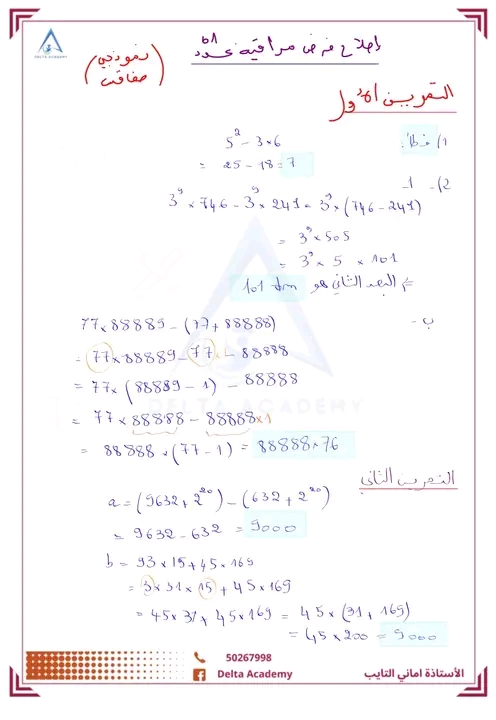 DELTA ACADEMY
إصلاح فرض مراقبة عدد
نموذجي
صفاقس
التمرين الأول
1) خطأ.
5² - 3×6
= 25 - 18 = 7
2) - 1
3⁹ × 746 - 3⁹ × 241 = 3⁹ × (746 - 241)
= 3⁹ × 505
= 3⁹ × 5 × 101
البعد الثاني هو 101 dm
ب -
77 × 88889 - (77 + 88888)
= 77 × 88889 - 77 - 88888
= 77 × (88889 - 1) - 88888
= 77 × 88888 - 88888 × 1
= 88888 × (77 - 1) = 88888 × 76
DELTA ACADEMY
التمرين الثاني
a = (9632 + 2²⁰) - (632 + 2²⁰)
= 9632 - 632 = 9000
b = 93 × 15 + 45 × 169
= 3 × 31 × 15 + 45 × 169
= 45 × 31 + 45 × 169 = 45 × (31 + 169)
= 45 × 200 = 9000
50267998
Delta Academy
الأستاذة اماني التايب